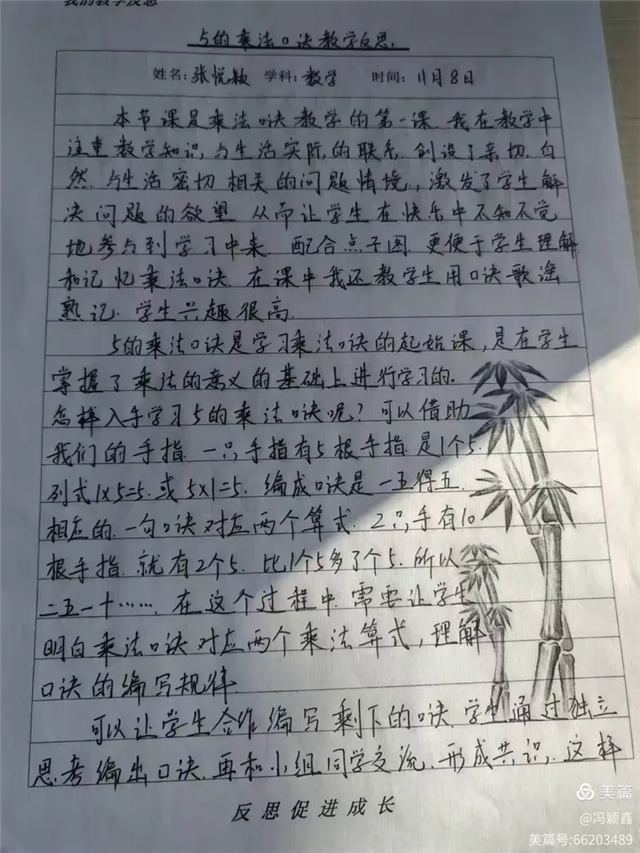 我的教学反思
5的乘法口诀教学反思.
姓名: 张悦颖 学科: 数学 时间: 11月8日
本节课是乘法口诀教学的第一课. 我在教学中
注重数学知识, 与生活实际, 的联系. 创设了亲切. 自
然. 与生活密切相关的问题情境, 激发了学生解
决问题的欲望. 从而让学生在快乐中不知不觉
地参与到学习中来. 配合点子图. 更便于学生理解
和记忆乘法口诀. 在课中我还教学生用口诀歌谣
熟记. 学生兴趣很高.
5的乘法口诀是学习乘法口诀的起始课, 是在学生
掌握了乘法的意义的基础上进行学习的.
怎样入手学习5的乘法口诀呢? 可以借助
我们的手指. 一只手指有5根手指是1个5.
列式1×5=5. 或5×1=5. 编成口诀是一五得五.
相应的. 一句口诀对应两个算式. 2只手有10
根手指. 就有2个5. 比1个5多了个5. 所以
二五一十…… 在这个过程中. 需要让学生
明白乘法口诀对应两个乘法算式, 理解
口诀的编写规律.
可以让学生合作编写剩下的口诀. 学生通过独立
思考编出口诀. 再和小组同学交流. 形成共识. 这样
反思促进成长
美篇
@冯颖鑫
美篇号:66203489